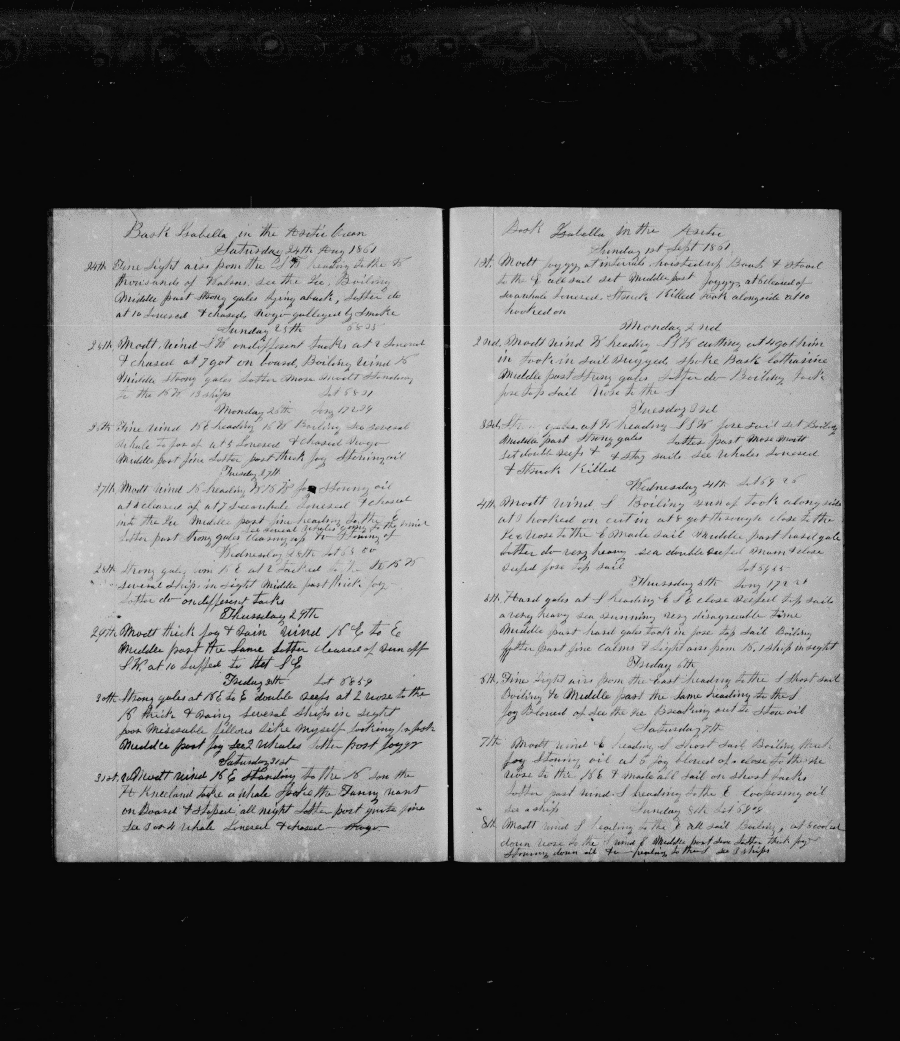 Bark Isabella in the Arctic Ocean
Saturday 24th Aug 1861
24th Fine light airs from the S W heading to the W
thousands of Walrus. see the Ice. Boiling
Middle part strong gales lying aback, Latter do
at 10 Lowered & chased, nogo galleyed by smoke
Sunday 25th
25th Modt wind S W on different tacks at 2 Lowered
& chased at 7 got on board, Boiling wind N
Middle strong gales Latter more modt Standing
to the N W 13 ships Lat
Monday 26th Long
26th Fine wind N E heading N W Boiling See several
whale to far of at 5 Lowered & chased nogo
Middle part fine Latter part thick fog Stowing oil
Tuesday 27th
27th Modt wind N heading W N W fog Stowing oil
at cleared up at 7 see whale Lowered & chased
into the Ice Middle part fine heading to the E
see several whales going to the wind
Latter part strong gales clearing up & Stowing of
Wednesday 28th Lat
28th Strong gales from N E at 2 tacked to the N W
several ships in sight Middle part thick fog
Latter do on different tacks
Thursday 29th
29th Modt thick fog & rain wind N E to E
Middle part the same Latter cleared of run off
S W at 10 Luffed to the S E
Friday 30th Lat 68 59
30th Strong gales at N E to E double reefs at 2 wore to the
N thick & rainy several ships in sight
poor Miserable fellows like myself looking for
Middle part fog see 2 whales Latter part foggy
Saturday 31st
31st Modt wind N E Standing to the N son the
H Kneeland take a whale spoke the Fanny went
on Board & stoped all night Latter part quite fine
See 3 or 4 whale Lowered & chased Nogo
Bark Isabella in the Arctic
Sunday 1st Sept 1861
1st. Modt foggy at intervals hoisted up Bank & stood
to the E all sail set Middle part foggy, at cleared of
see whale Lowered, Struck Killed took alongside at 10
hooked on
Monday 2nd
2nd. Modt wind W heading S S W cutting at 4 got him
in took in sail spoke Bark Catharine
Middle part Strong gales Latter do Boiling took
fore top sail wore to the S
Tuesday 3rd
3rd. Strong gales at W heading S S W fore sail set Boiling
Middle part strong gales Latter part More modt
set double reefs & & Stay sails see whales Lowered
& Struck Killed
Wednesday 4th Lat
4th Modt wind S Boiling run up took alongside
at 3 hooked on cut in at 8 got through close to the
Ice wore to the E Made sail Middle part hard gale
Latter do very heavy sea double reefed main & close
reefed fore top sail Lat
Thursday 5th Long
5th. Hard gales at S heading E S E close reefed top sails
a very heavy sea running very disagreeable time
Middle part hard gales took in fore top sail Boiling
Latter part fine calms & Light airs from N. 1 ship in sight
Friday 6th
6th. Fine Light airs from the East heading to the S Short sail
Boiling & Middle part the same heading to the S
fog blowed of see the Ice Breaking out to Stow oil
Saturday 7th
7th Modt wind E heading S Short sail Boiling thick
fog Stowing oil at 5 fog blowed of close to the Ice
wore to the N E & made all sail on short tacks
Latter part wind S heading to the E Coopering oil
see a ship Sunday 8th Lat
8th Modt wind S heading to the E all sail Boiling, at 8 cooled
down wore to the wind E Middle part fine Latter thick fog
Stowing down oil heading to the S see 3 ships